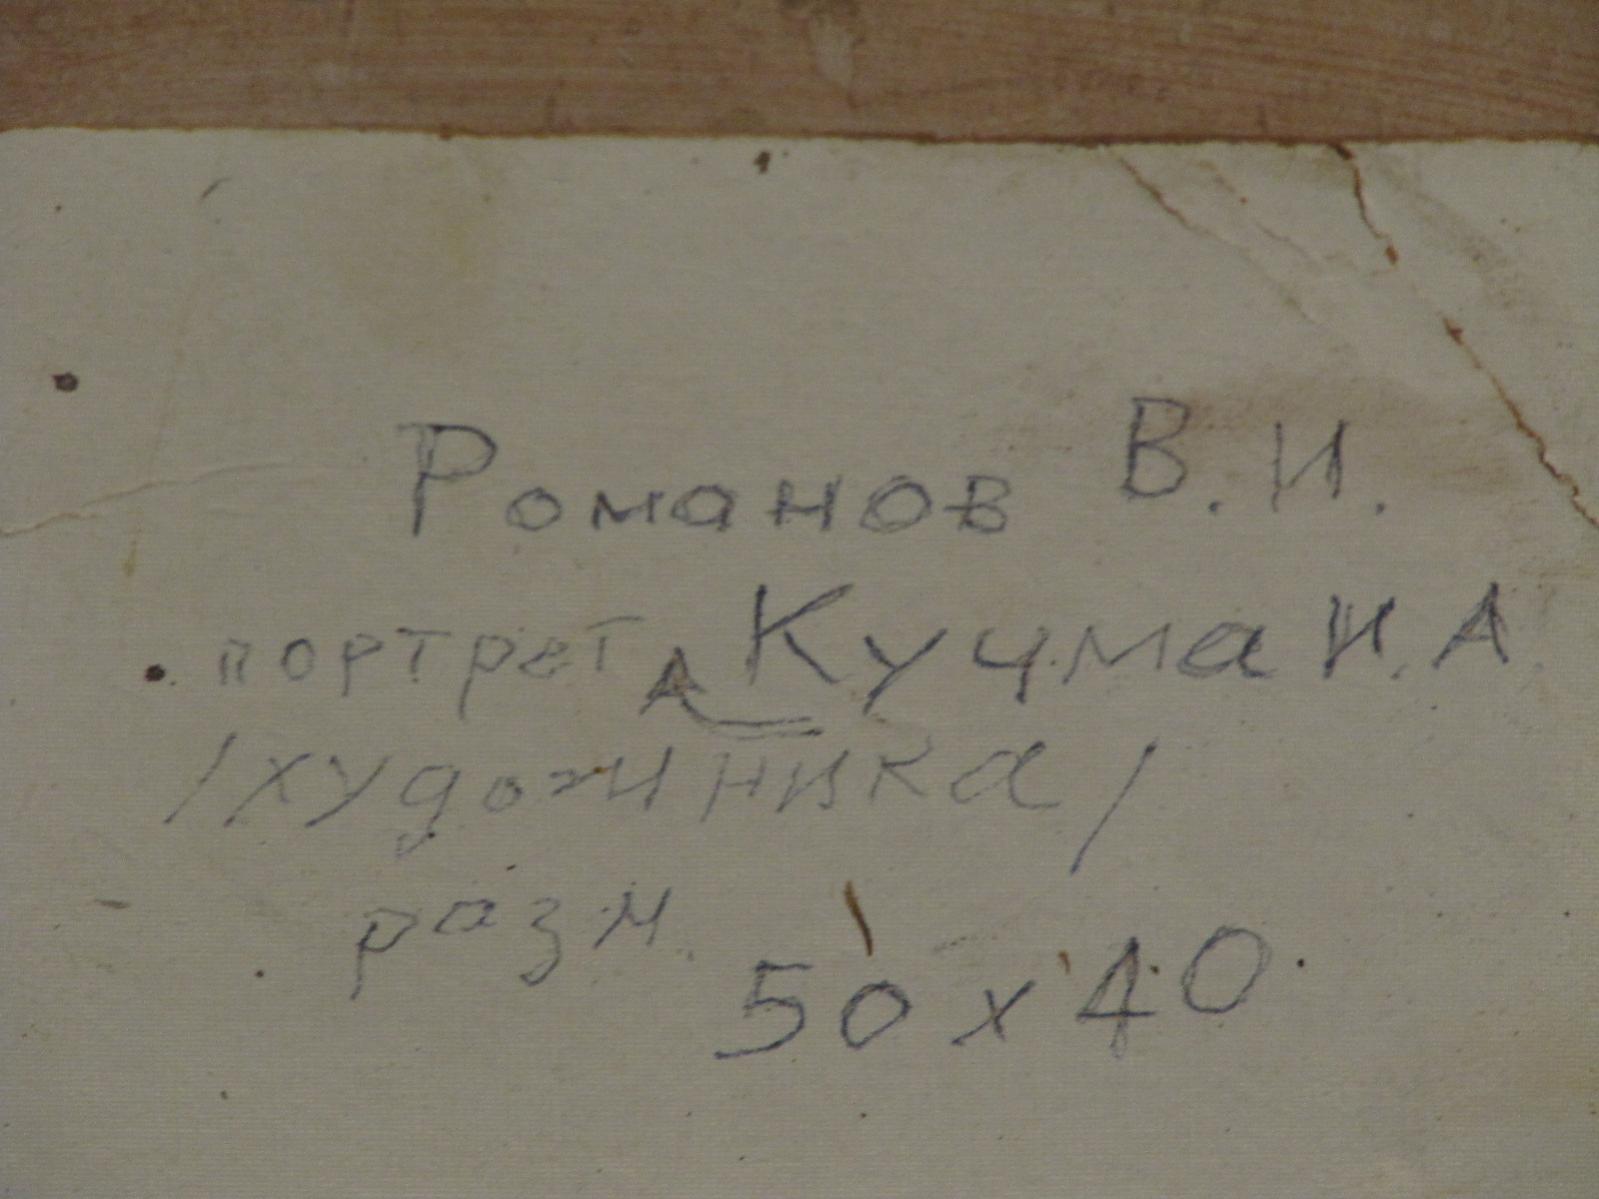 Романов В. И.
портрет Кучма И. А.
/художника/
разм.
50 х 40